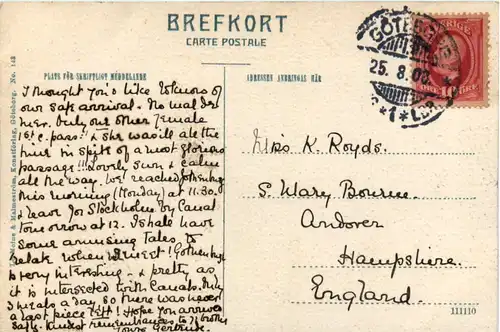 BREFKORT
CARTE POSTALE
PLATS FÖR SKRIFTLIGT MEDDELANDE
ADRESSEN ANBRINGAS HÄR
GÖTEBORG
25. 8. 0
*1* LBR
SVERIGE
ÖRE 10 ÖRE
Konstförlag, Göteborg. No. 143
I thought you'd like to know of
our safe arrival. No
her. Only our other female
1st c. pass: & she was ill all the
time in spite of a most glorious
passage!!! Lovely sun & calm
all the way. We reached
this morning (Monday) at 11.30
& leave for Stockholm by Canal
tomorrow at 12. I shall have
some amusing tales to
relate when we meet! Gothenburg
is very interesting - & pretty as
it is intersected with Canals. Only
meals a day, so there was never
a last piece left! Hope you arrived
safely. Kindest remembrances to brother
Yours Gertrude.
Miss K. Royds.
S. Mary Bourne.
Andover
Hampshire.
England.
111110